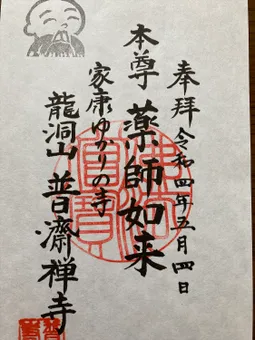 奉拝 令和四年五月四日
本尊 薬師如来
家康ゆかりの寺
龍洞山 普齋禅寺
佛法僧寳